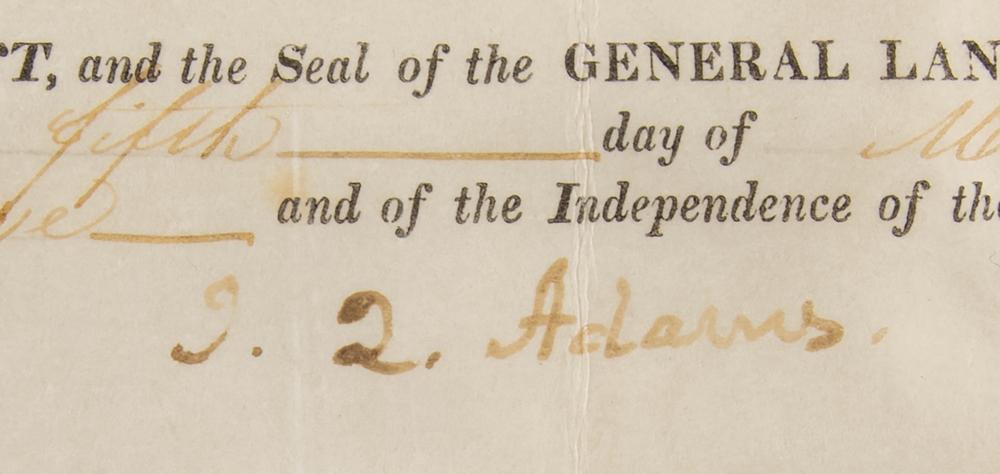 and the Seal of the GENERAL
fifth day of
and of the Independence of
J. Q. Adams.